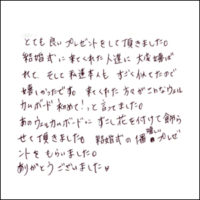 とても良いプレゼントをして頂きました。
結婚式に来てくれた人達に 大変喜ば
れて、そして 私達本人も すごく似てたので
嬉しかったです。来てくれた方々がこんなウェル
カムボード初めて!と言ってました。
あのウェルカムボードに すこし花を付けて飾ら
せて頂きました 結婚式の1番 嬉しい プレゼ
ントを もらいました。
ありがとうございました。